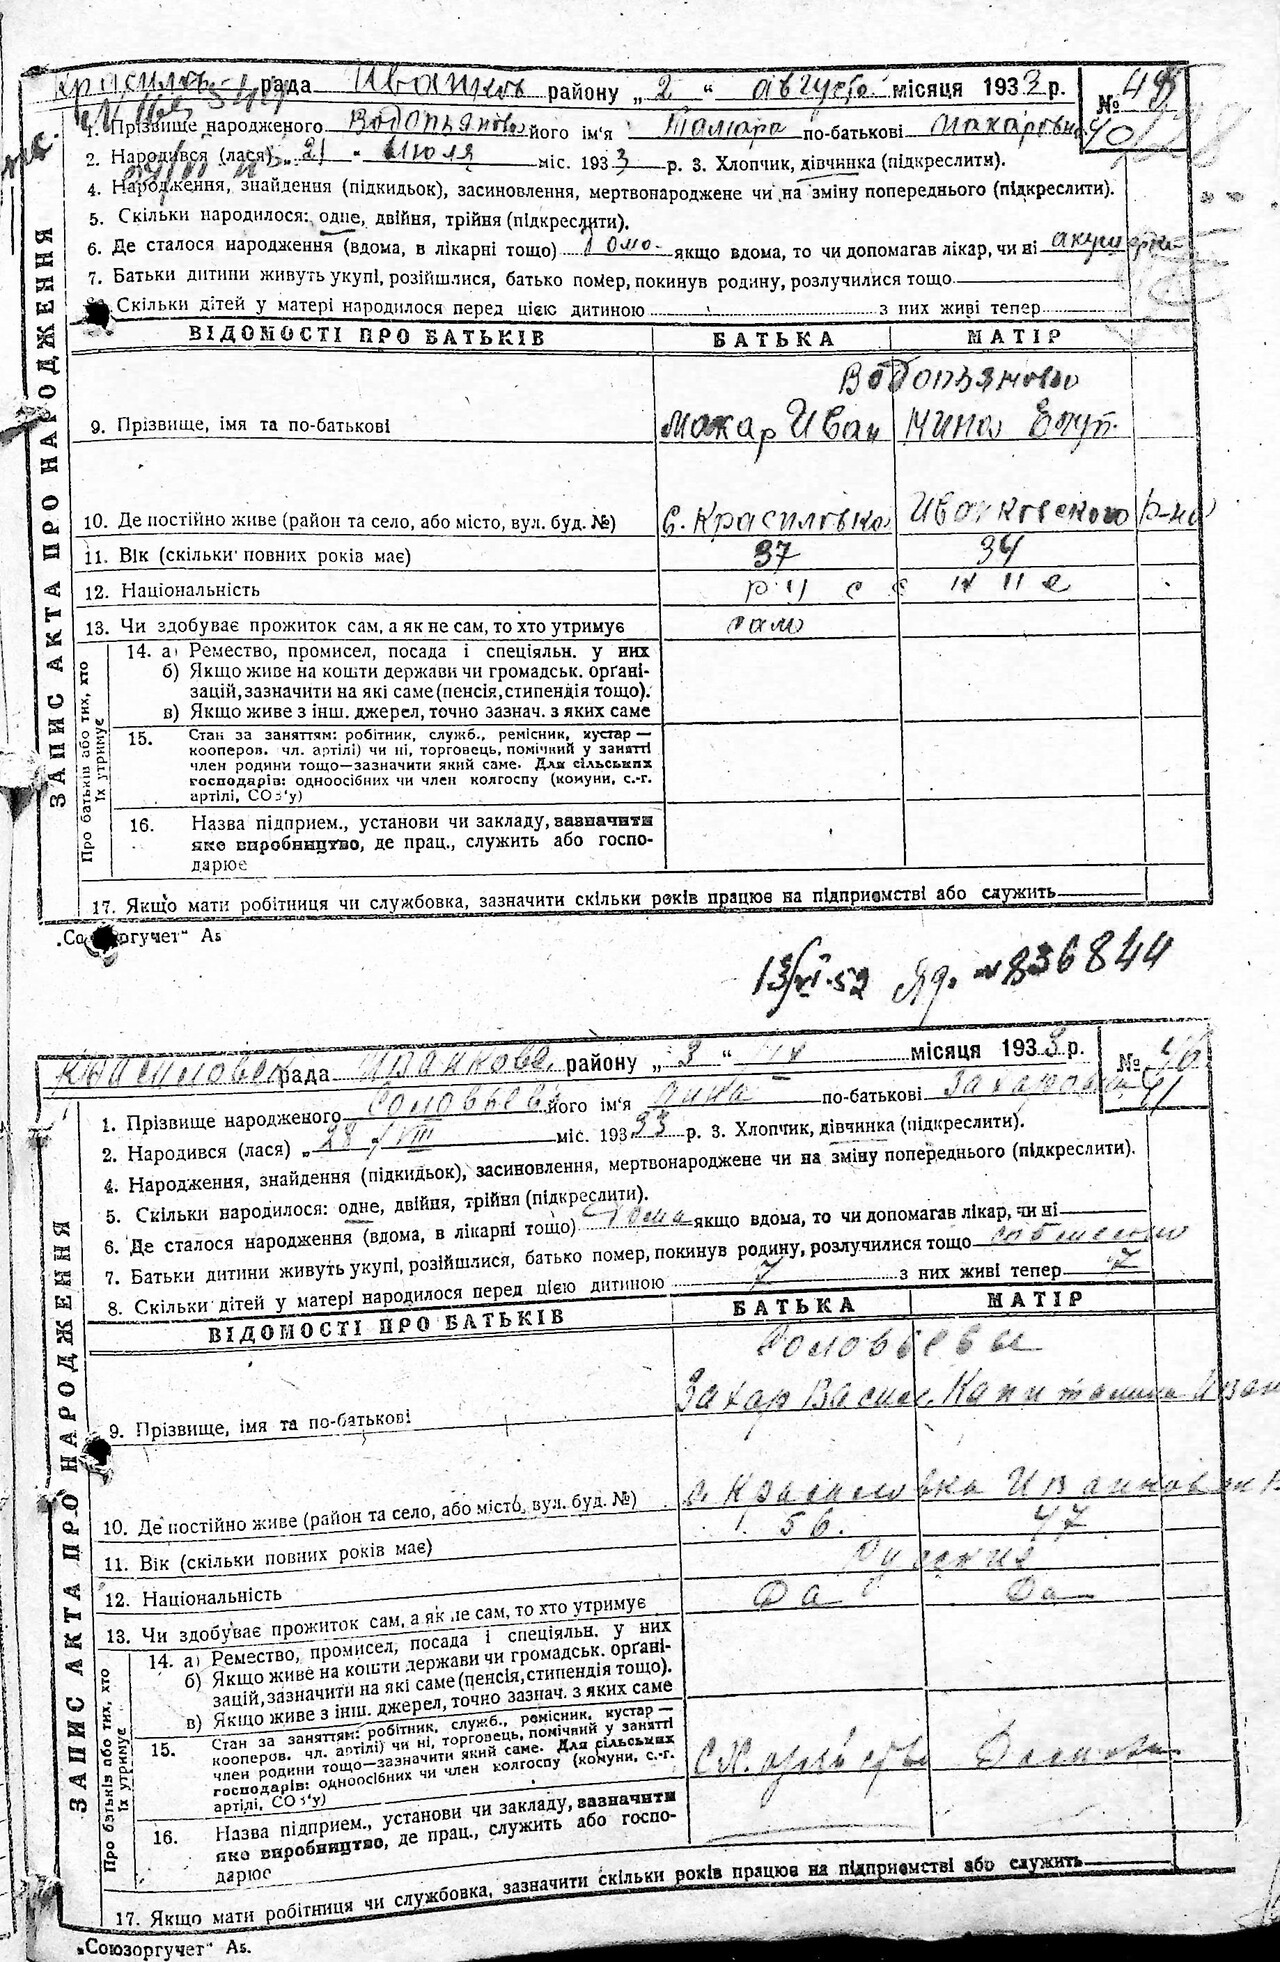 рада Иванков району „2“ августа місяця 1933 р. №
1. Прізвище народженого Водопьянова його ім'я Тамара по-батькові Макаровна 40
2. Народився (лася) „21“ июля міс. 1933 р. 3. Хлопчик, дівчинка (підкреслити).
4. Народження, знайдення (підкидьок), засиновлення, мертвонароджене чи на зміну попереднього (підкреслити).
5. Скільки народилося: одне, двійня, трійня (підкреслити).
6. Де сталося народження (вдома, в лікарні тощо) дома якщо вдома, то чи допомагав лікар, чи ні акушерка
7. Батьки дитини живуть укупі, розійшлися, батько помер, покинув родину, розлучилися тощо
Скільки дітей у матері народилося перед цією дитиною з них живі тепер
ВІДОМОСТІ ПРО БАТЬКІВ БАТЬКА МАТІР
Водопьяновы
9. Прізвище, імя та по-батькові Макар Иван Нина
10. Де постійно живе (район та село, або місто, вул. буд. №) с. Красиловка Иванковского р-на
11. Вік (скільки повних років має) 37 34
12. Національність русские
13. Чи здобуває прожиток сам, а як не сам, то хто утримує сам
14. а) Ремество, промисел, посада і спеціяльн. у них
б) Якщо живе на кошти держави чи громадськ. організацій, зазначити на які саме (пенсія, стипендія тощо).
в) Якщо живе з інш. джерел, точно зазнач. з яких саме
15. Стан за заняттям: робітник, служб., ремісник, кустар —
кооперов. чл. артілі) чи ні, торговець, помічний у занятті
член родини тощо—зазначити який саме. Для сільських
господарів: одноосібних чи член колгоспу (комуни, с.-г.
артілі, СОЗ'у)
16. Назва підприєм., установи чи закладу, зазначити
яке виробництво, де прац., служить або госпо-
дарює
17. Якщо мати робітниця чи службовка, зазначити скільки років працює на підприємстві або служить
ЗАПИС АКТА ПРО НАРОДЖЕННЯ
Про батьків або тих, хто
їх утримує
оргучет“ А5
13/VI-52 № 836844
рада району „3“ місяця 1933 р. № 46
1. Прізвище народженого Соловьева його ім'я Анна по-батькові Захаровна 41
2. Народився (лася) „28/VIII міс. 1933 р. 3. Хлопчик, дівчинка (підкреслити).
4. Народження, знайдення (підкидьок), засиновлення, мертвонароджене чи на зміну попереднього (підкреслити).
5. Скільки народилося: одне, двійня, трійня (підкреслити).
6. Де сталося народження (вдома, в лікарні тощо) дома якщо вдома, то чи допомагав лікар, чи ні
7. Батьки дитини живуть укупі, розійшлися, батько помер, покинув родину, розлучилися тощо
8. Скільки дітей у матері народилося перед цією дитиною 7 з них живі тепер 7
ВІДОМОСТІ ПРО БАТЬКІВ БАТЬКА МАТІР
Соловьевы
9. Прізвище, імя та по-батькові Захар Васил. Капиталина Иван
10. Де постійно живе (район та село, або місто, вул. буд. №) с. Красиловка
11. Вік (скільки повних років має) 56. 47
12. Національність Русския
13. Чи здобуває прожиток сам, а як не сам, то хто утримує Да Да
14. а) Ремество, промисел, посада і спеціяльн. у них
б) Якщо живе на кошти держави чи громадськ. органі-
зацій, зазначити на які саме (пенсія, стипендія тощо).
в) Якщо живе з інш. джерел, точно зазнач. з яких саме
15. Стан за заняттям: робітник, служб., ремісник, кустар —
кооперов. чл. артілі) чи ні, торговець, помічний у занятті
член родини тощо—зазначити який саме. Для сільських
господарів: одноосібних чи член колгоспу (комуни, с.-г.
артілі, СОЗ'у)
16. Назва підприєм., установи чи закладу, зазначити
яке виробництво, де прац., служить або госпо-
дарює
17. Якщо мати робітниця чи службовка, зазначити скільки років працює на підприємстві або служить
ЗАПИС АКТА ПРО НАРОДЖЕННЯ
Про батьків або тих, хто
їх утримує
„Союзоргучет“ А5.